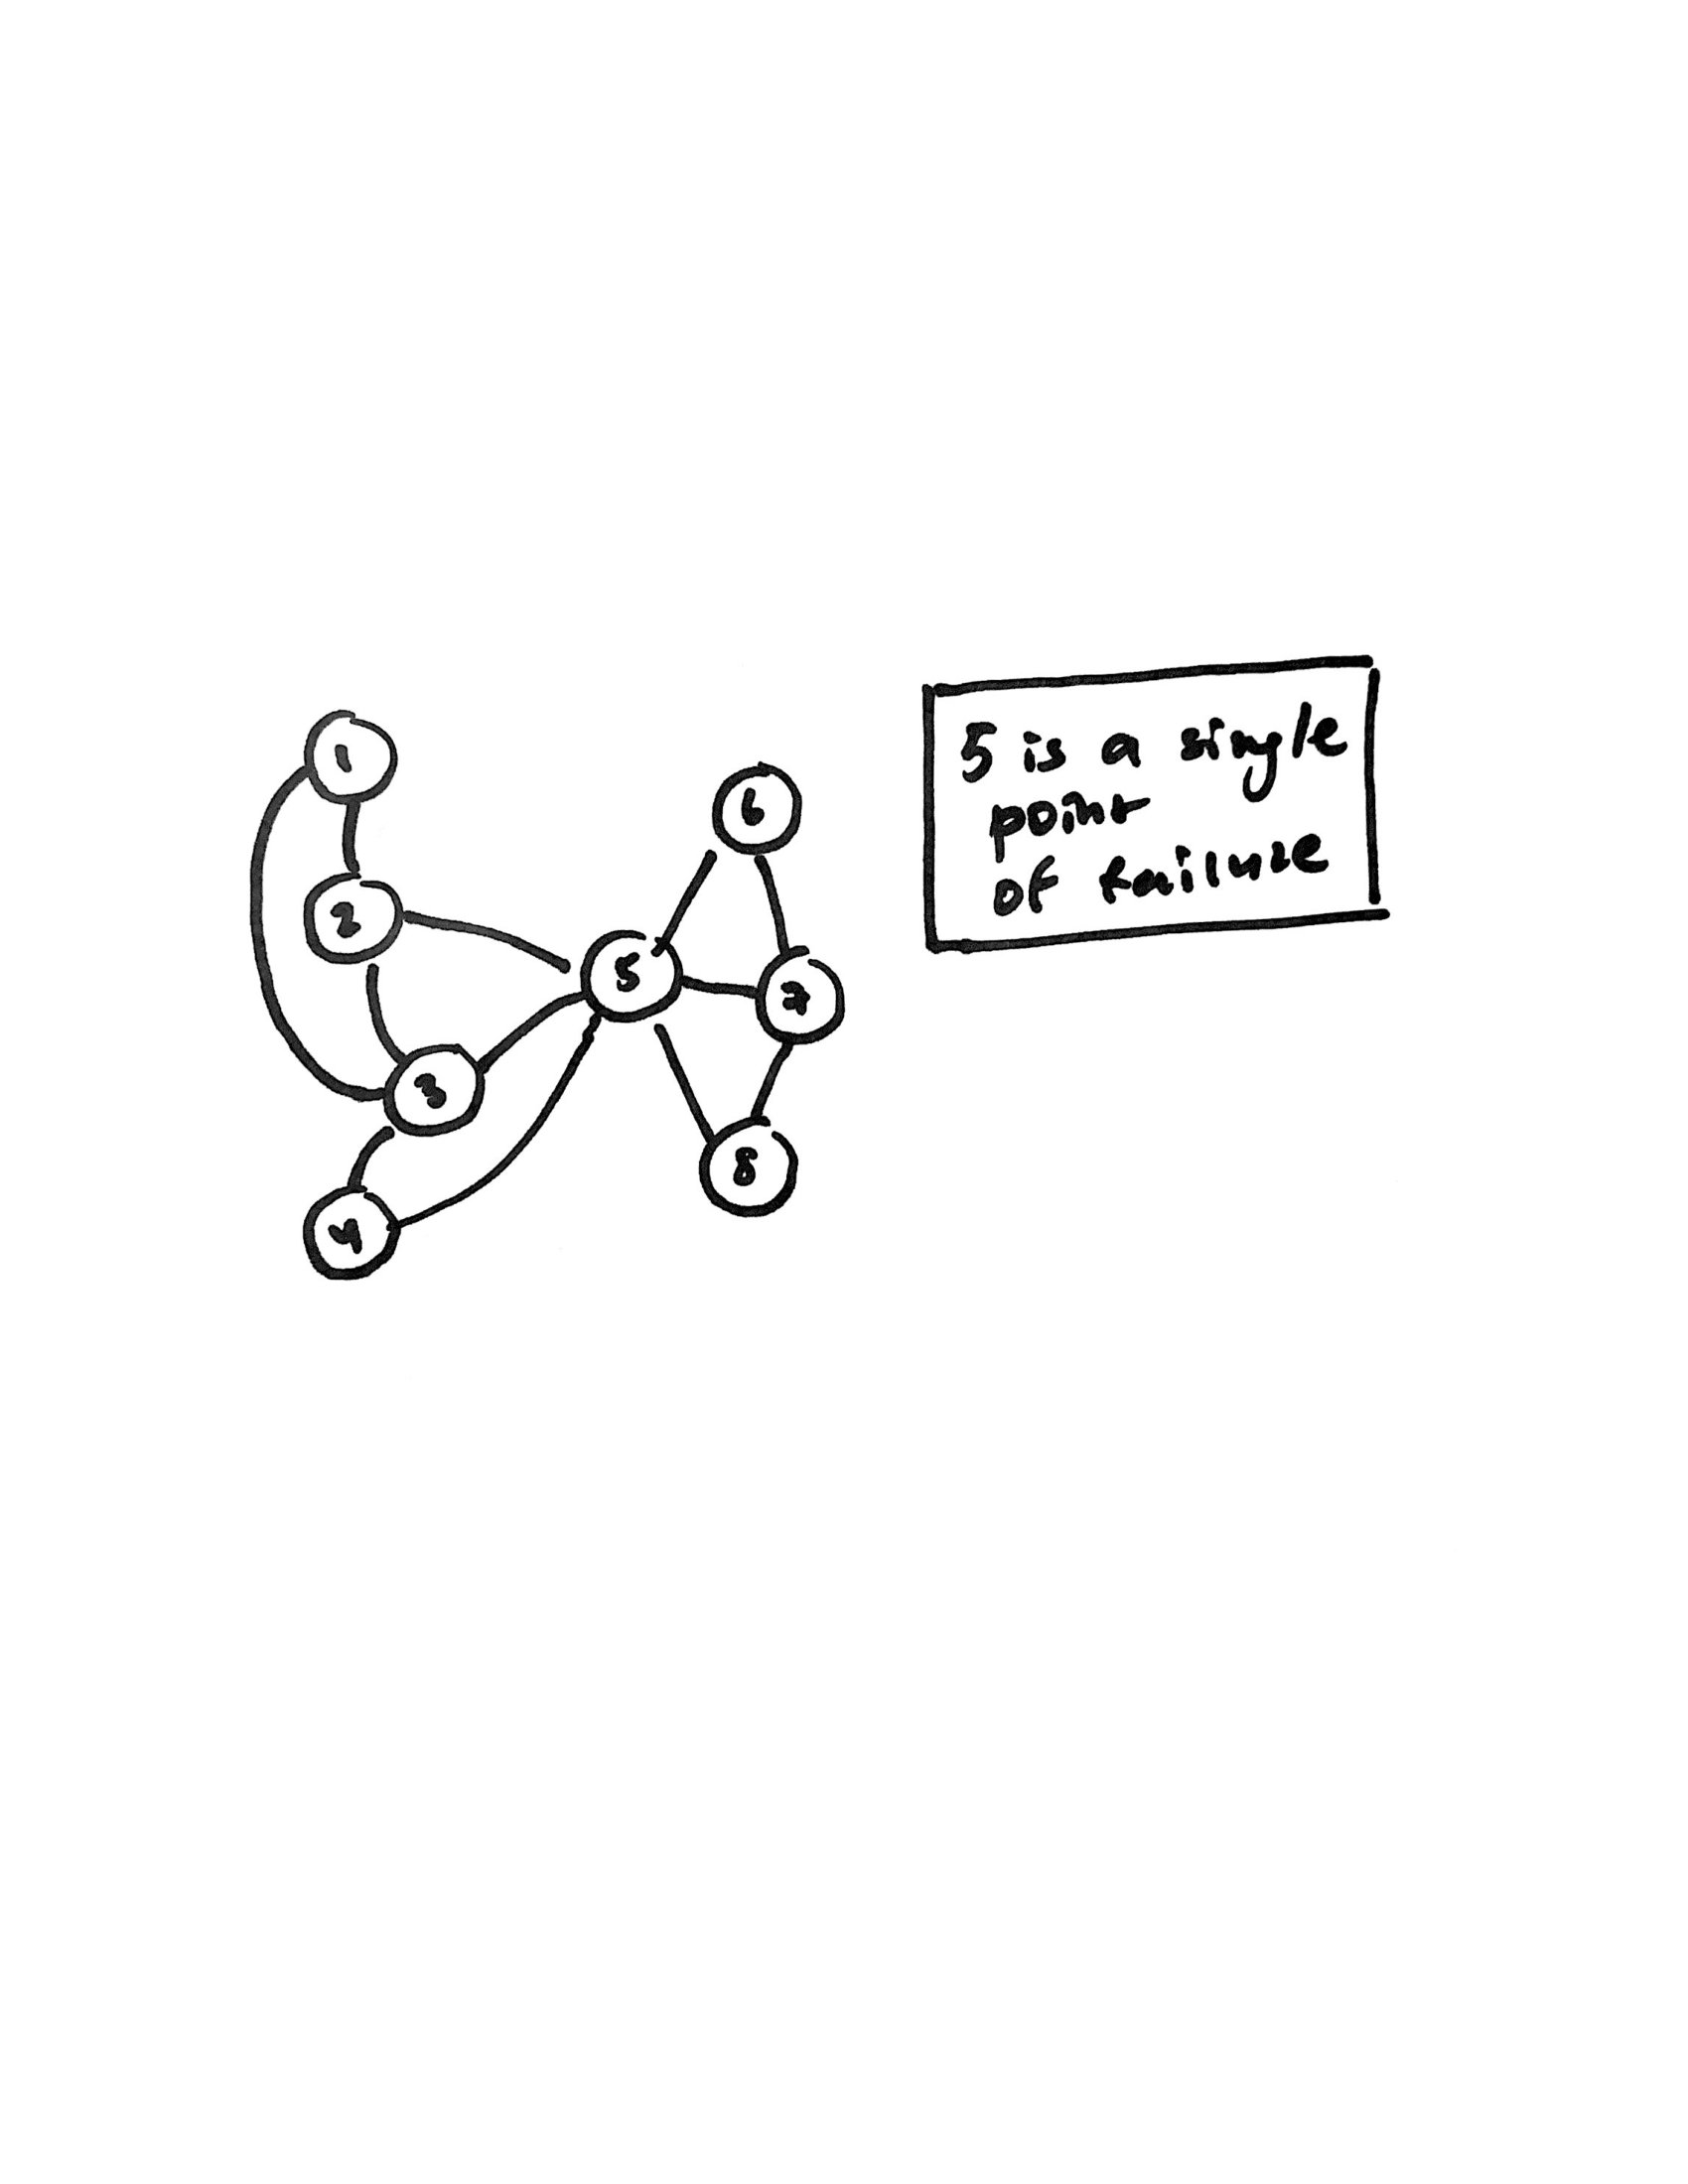 1
6
2
5
7
3
8
4
5 is a single
point
of failure